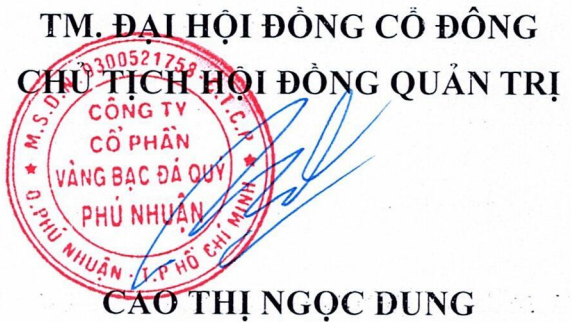 TM. ĐẠI HỘI ĐỒNG CỔ ĐÔNG
CHỦ TỊCH HỘI ĐỒNG QUẢN TRỊ
M.S.D.N: 0300521758 - C.T.C.P
CÔNG TY
CỔ PHẦN
VÀNG BẠC ĐÁ QUÝ
PHÚ NHUẬN
Q.PHÚ NHUẬN - T.P HỒ CHÍ MINH
CAO THỊ NGỌC DUNG